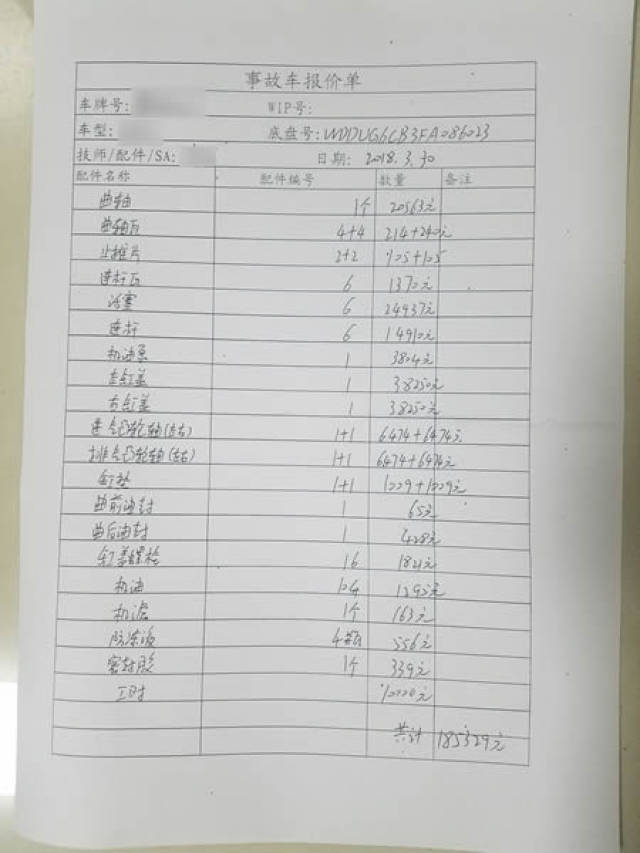 事故车报价单
车牌号: WIP号:
车型: 底盘号: WDDUG6CB3FA086023
技师/配件/SA: 日期: 2018.3.30
配件名称 配件编号 数量 备注
曲轴 1个 20563元
曲轴瓦 4+4 214+240元
止推片 2+2 105+105
连杆瓦 6 1370元
活塞 6 24937元
连杆 6 14910元
机油泵 1 3804元
左缸盖 1 38250元
右缸盖 1 38250元
进气凸轮轴(左右) 1+1 6474+6474元
排气凸轮轴(左右) 1+1 6474+6474元
缸垫 1+1 1029+1029元
曲前油封 1 65元
曲后油封 1 428元
缸盖螺栓 16 184元
机油 1295元
机滤 1个 163元
防冻液 4瓶 556元
密封胶 1个 339元
工时 元
共计 185329元